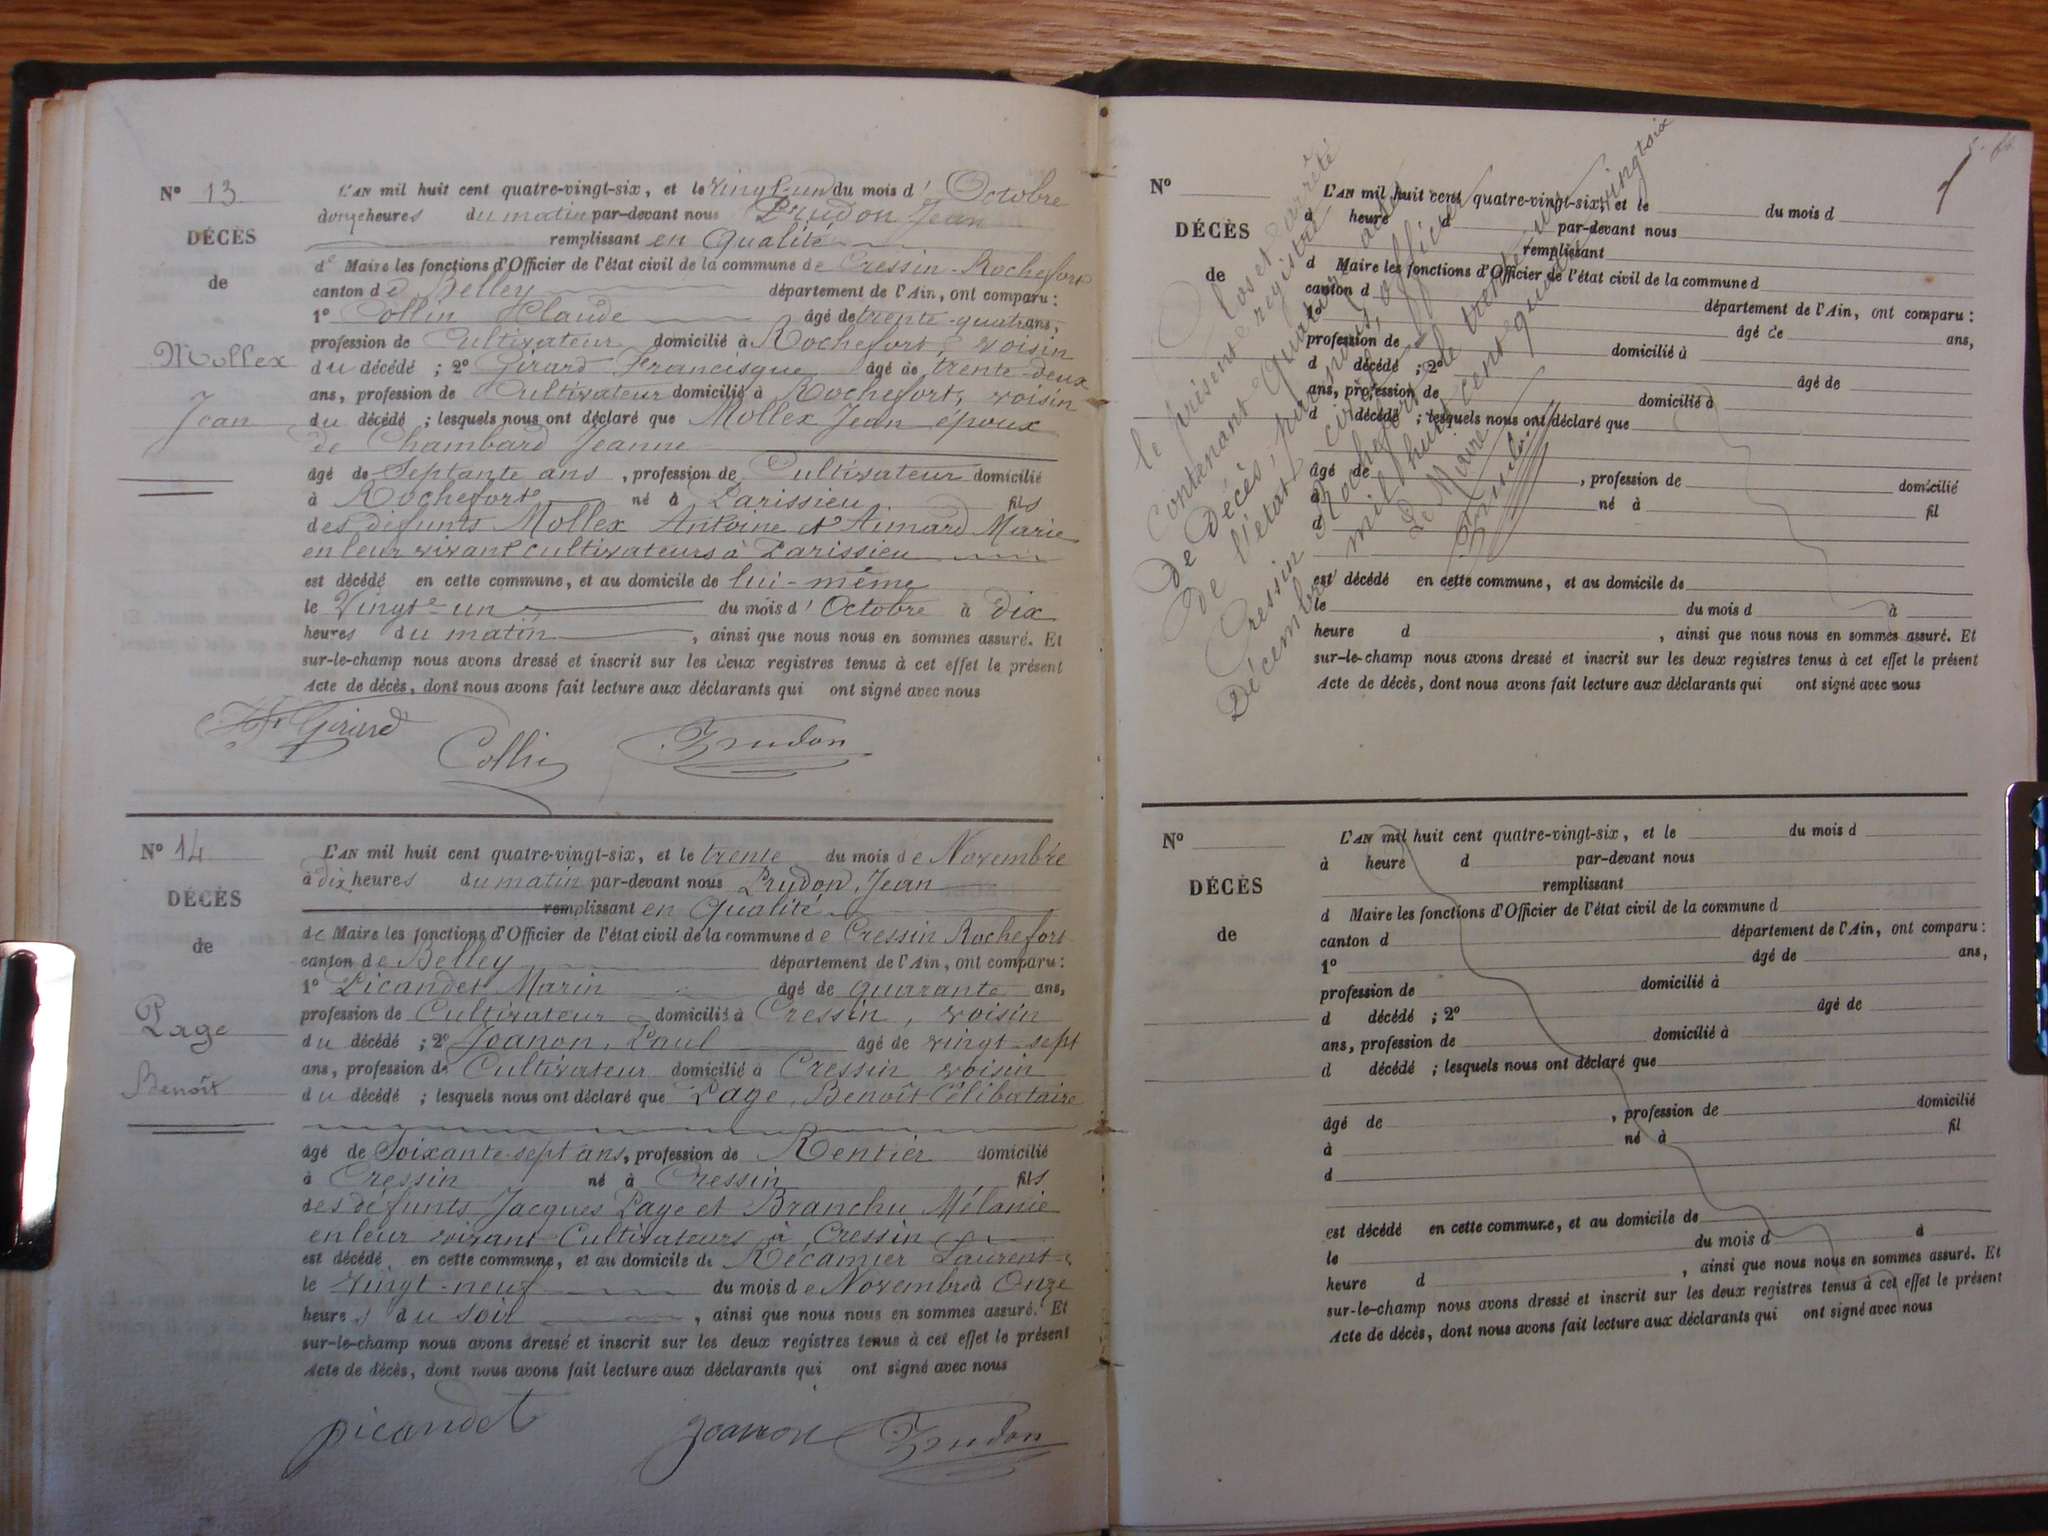 N° 13
DÉCÈS
de
Mollex
Jean
L'AN mil huit cent quatre-vingt-six, et le vingt-un du mois d' Octobre
donze heures du matin par-devant nous Prudon Jean
remplissant en Qualité
de Maire les fonctions d'Officier de l'état civil de la commune de Cressin-Rochefort
canton de Belley département de l'Ain, ont comparu :
1° Collin Claude âgé de trente-quatre ans,
profession de Cultivateur domicilié à Rochefort, voisin
du décédé ; 2° Girard Francisque âgé de trente-deux
ans, profession de Cultivateur domicilié à Rochefort, voisin
du décédé ; lesquels nous ont déclaré que Mollex Jean époux
de Chambard Jeanne
âgé de Septante ans , profession de Cultivateur domicilié
à Rochefort né à Parissieu fils
des défunts Mollex Antoine et Aimard Marie
en leur vivant cultivateurs à Parissieu
est décédé en cette commune, et au domicile de lui-même
le Vingt-un du mois d' Octobre à dix
heures du matin , ainsi que nous nous en sommes assuré. Et
sur-le-champ nous avons dressé et inscrit sur les deux registres tenus à cet effet le présent
Acte de décès, dont nous avons fait lecture aux déclarants qui ont signé avec nous
Girard
Collin Prudon
N° 14
DÉCÈS
de
Page
Benoît
L'AN mil huit cent quatre-vingt-six, et le trente du mois de Novembre
à dix heures du matin par-devant nous Prudon, Jean
remplissant en Qualité
de Maire les fonctions d'Officier de l'état civil de la commune de Cressin Rochefort
canton de Belley département de l'Ain, ont comparu :
1° Picandet Marin âgé de quarante ans,
profession de Cultivateur domicilié à Cressin, voisin
du décédé ; 2° Joanon, Paul âgé de vingt-sept
ans, profession de Cultivateur domicilié à Cressin voisin
du décédé ; lesquels nous ont déclaré que Page, Benoît Célibataire
âgé de Soixante-sept ans, profession de Rentier domicilié
à Cressin né à Cressin fils
des défunts Jacques Page et Branchu Mélanie
en leur vivant Cultivateurs à Cressin
est décédé en cette commune, et au domicile de Récamier Laurent
le vingt-neuf du mois de Novembre à Onze
heures du soir , ainsi que nous nous en sommes assuré. Et
sur-le-champ nous avons dressé et inscrit sur les deux registres tenus à cet effet le présent
Acte de décès, dont nous avons fait lecture aux déclarants qui ont signé avec nous
picandet Joanon Prudon
Clos et arrêté
le présent registre
contenant Quatorze actes
de Décès, par nous, officier
de l'état civil de
Cressin Rochefort le trente-un
Décembre mil huit cent quatre vingt six
Le Maire
Prudon
N°
DÉCÈS
de
L'AN mil huit cent quatre-vingt-six, et le du mois d
à heure d par-devant nous
remplissant
d Maire les fonctions d'Officier de l'état civil de la commune d
canton d département de l'Ain, ont comparu :
1° âgé de ans,
profession de domicilié à
d décédé ; 2° âgé de
ans, profession de domicilié à
d décédé ; lesquels nous ont déclaré que
âgé de , profession de domicilié
à né à fil
d
est décédé en cette commune, et au domicile de
le du mois d à
heure d , ainsi que nous nous en sommes assuré. Et
sur-le-champ nous avons dressé et inscrit sur les deux registres tenus à cet effet le présent
Acte de décès, dont nous avons fait lecture aux déclarants qui ont signé avec nous
N°
DÉCÈS
de
L'AN mil huit cent quatre-vingt-six, et le du mois d
à heure d par-devant nous
remplissant
d Maire les fonctions d'Officier de l'état civil de la commune d
canton d département de l'Ain, ont comparu :
1° âgé de ans,
profession de domicilié à
d décédé ; 2° âgé de
ans, profession de domicilié à
d décédé ; lesquels nous ont déclaré que
âgé de , profession de domicilié
à né à fil
d
est décédé en cette commune, et au domicile de
le du mois d à
heure d , ainsi que nous nous en sommes assuré. Et
sur-le-champ nous avons dressé et inscrit sur les deux registres tenus à cet effet le présent
Acte de décès, dont nous avons fait lecture aux déclarants qui ont signé avec nous